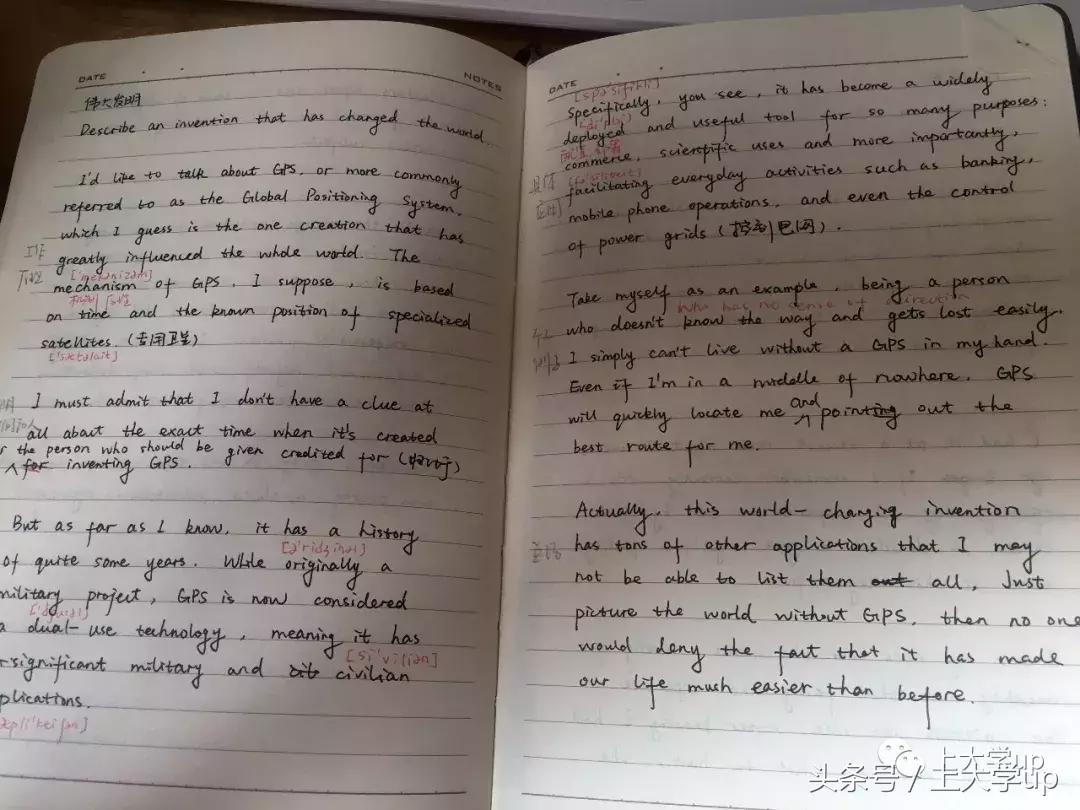 DATE
NOTES
伟大发明
Describe an invention that has changed the world.
I'd like to talk about GPS, or more commonly
referred to as the Global Positioning System,
which I guess is the one creation that has
greatly influenced the whole world. The
['mekənizəm]
mechanism of GPS, I suppose, is based
on time and the known position of specialized
satellites. (专用卫星)
['sætəlait]
I must admit that I don't have a clue at
all about the exact time when it's created
the person who should be given credited for
for inventing GPS.
But as far as I know, it has a history
[ə'ridʒinəl]
of quite some years. While originally a
military project, GPS is now considered
a dual-use technology, meaning it has
[si'viliən]
significant military and civilian
plications.
DATE
Specifically, you see, it has become a widely
deployed and useful tool for so many purposes:
commerce, scientific uses and more importantly,
facilitating everyday activities such as banking,
mobile phone operations, and even the control
of power grids (控制电网).
Take myself as an example, being a person
who has no sense of direction
who doesn't know the way and gets lost easily,
I simply can't live without a GPS in my hand.
Even if I'm in a middle of nowhere, GPS
will quickly locate me and pointing out the
best route for me.
Actually, this world-changing invention
has tons of other applications that I may
not be able to list them out all. Just
picture the world without GPS, then no one
would deny the fact that it has made
our life much easier than before.
上大学up
头条号 / 上大学up